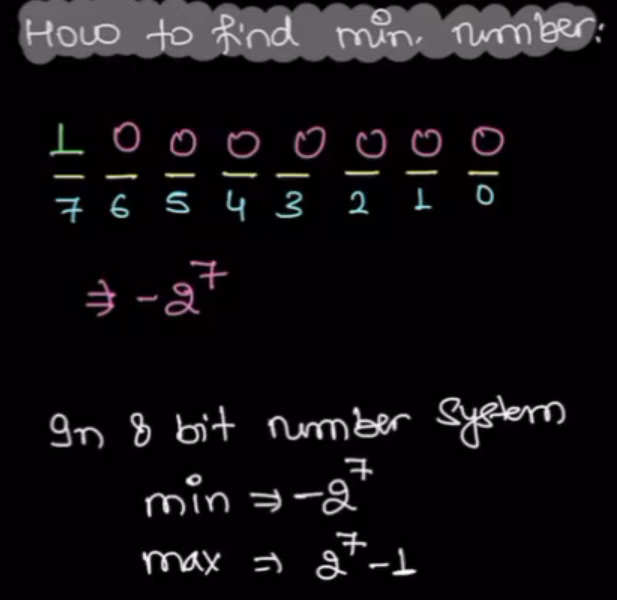 How to find min. number:
1 0 0 0 0 0 0 0
7 6 5 4 3 2 1 0
⇒ -2⁷
In 8 bit number system
min ⇒ -2⁷
max ⇒ 2⁷-1